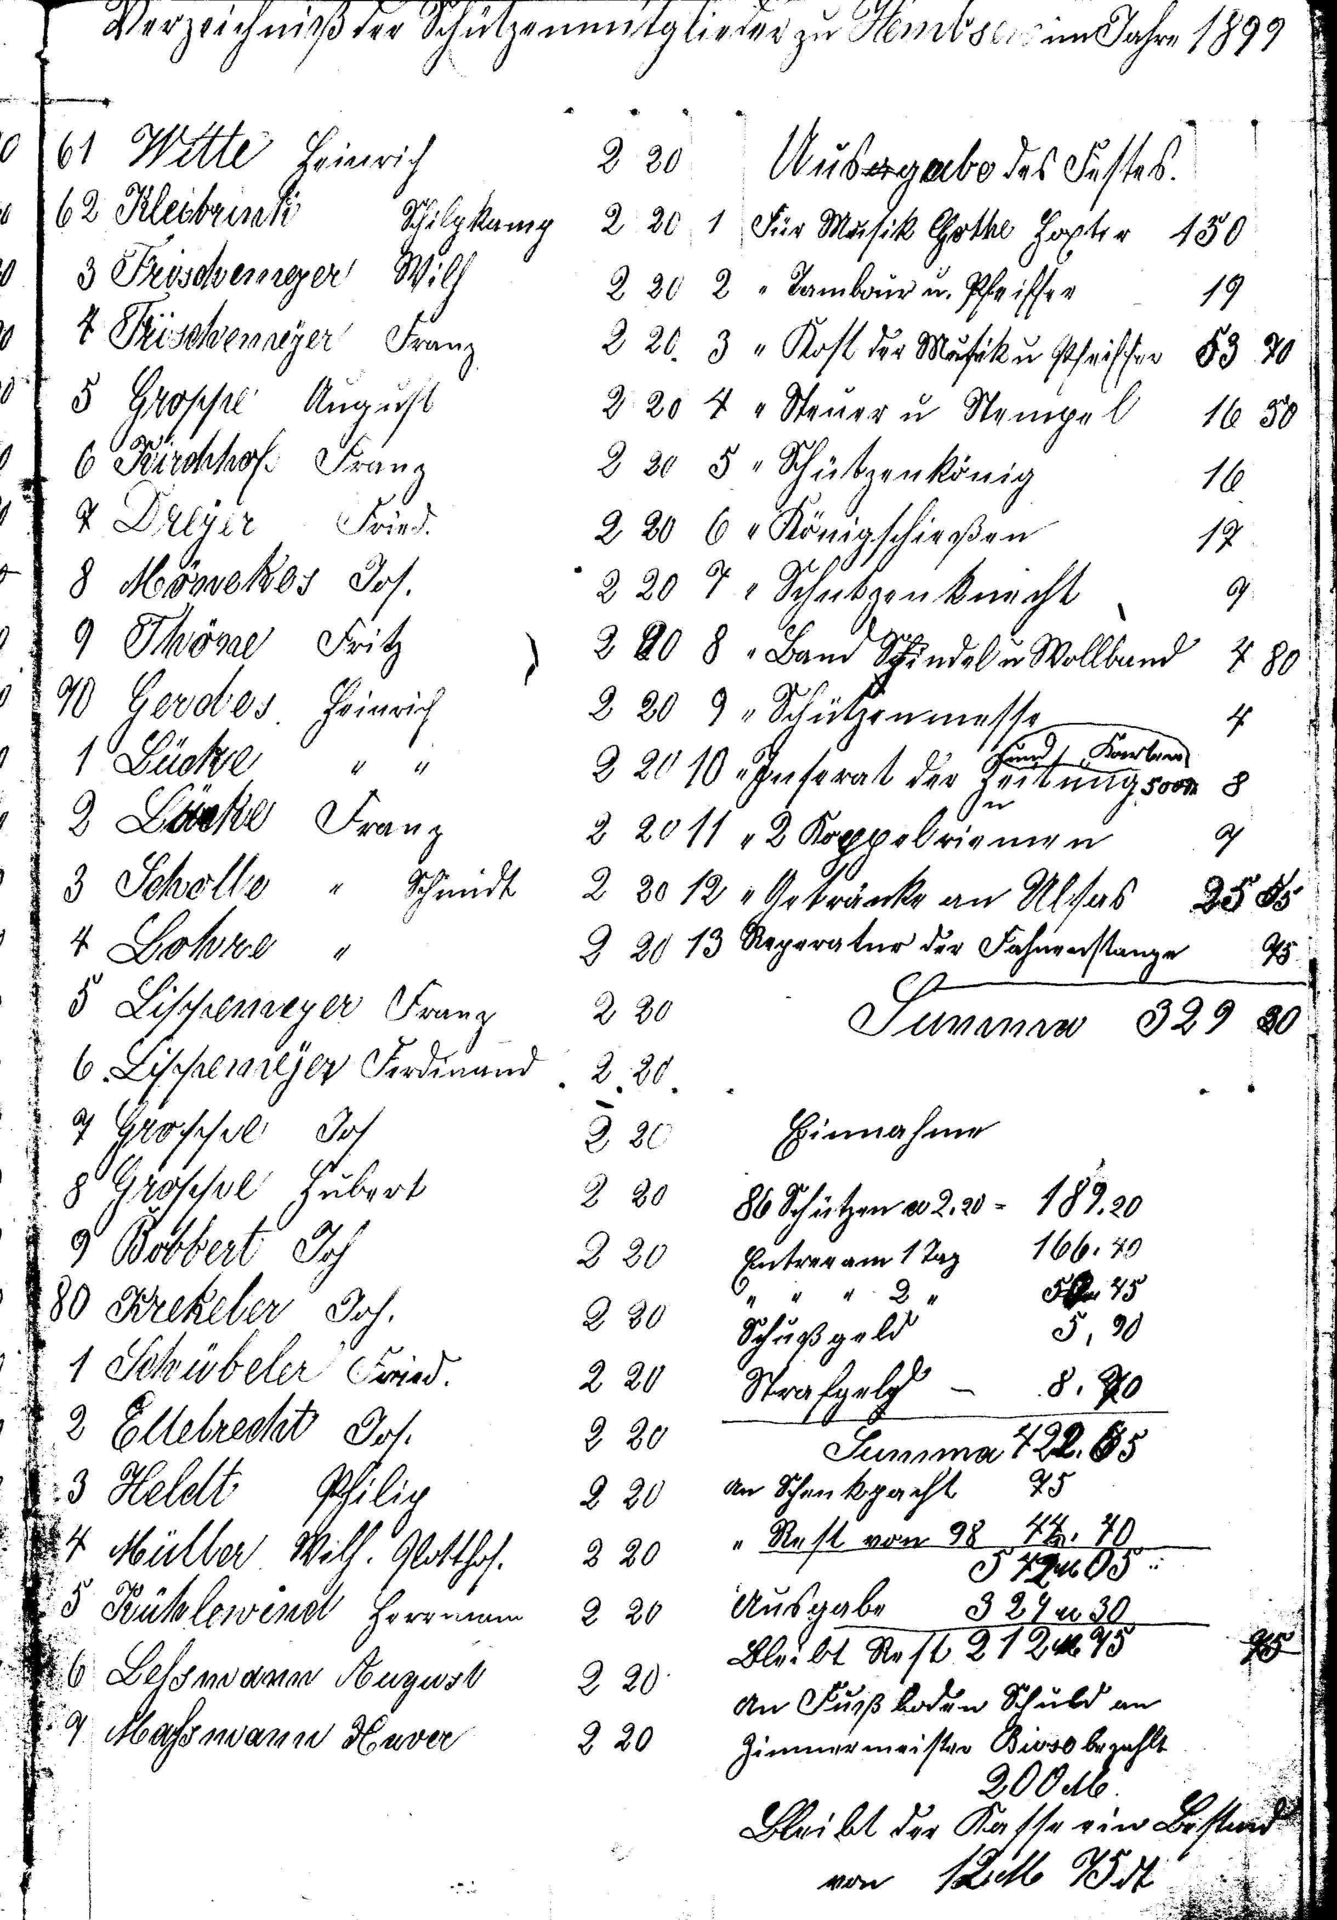 Verzeichniß der Schützenmitglieder zu Hembsen im Jahre 1899
61 Witte Heinrich 2 20
62 Kleibrink Schilpkamp 2 20
3 Frischemeyer Wilh 2 20
4 Frischemeyer Franz 2 20
5 Groppe August 2 20
6 Kirchhof Franz 2 20
7 Dreyer Fried. 2 20
8 Mönekes Jos. 2 20
9 Thöne Fritz 2 20
70 Gerdes Heinrich 2 20
1 Lücke " " 2 20
2 Lücke Franz 2 20
3 Scholle " Schmidt 2 20
4 Lohre " 2 20
5 Lippemeyer Franz 2 20
6 Lippemeyer Ferdinand 2 20
7 Groppe Jos 2 20
8 Groppe Hubert 2 20
9 Bobbert Joh 2 20
80 Krekeler Joh. 2 20
1 Schübeler Fried. 2 20
2 Ellebrecht Jos. 2 20
3 Heldt Philip 2 20
4 Müller Wilh. Glotthof. 2 20
5 Kühlewind Herrmann 2 20
6 Lessmann August 2 20
7 Massmann Xaver 2 20
Ausgabe des Festes.
1 Für Musik Gothe Höxter 150
2 " Tambour u. Pfeiffer 19
3 " Kost der Musik u Pfeiffer 53 70
4 " Steuer u Stempel 16 50
5 " Schützenkönig 16
6 " Königschießen 17
7 " Schützenknecht 9
8 " Band Spindel u Wollband 4 80
9 " Schützenmesse 4
und Karten
10 " Inserat der Zeitung 500 8
11 " 2 Koppelriemen 7
12 " Getränke an Ulsas 25 55
13 Reperatur der Fahnenstange 75
Summa 329 30
Einnahme
86 Schützen a 2.20 = 189.20
Entree am 1 Tag 166.40
" " " 2 " 52 45
Schußgeld 5,90
Strafgeld - 8.70
Summa 422.65
an Schenkpacht 75
" Rest von 98 44.40
542 M 05
Ausgabe 329 M 30
Bleibt Rest 212 M 75
75
an Fußboden Schuld an
Zimmermeister bezahlt
200 M.
Bleibt der Kasse ein Bestand
von 12 M 75 dt